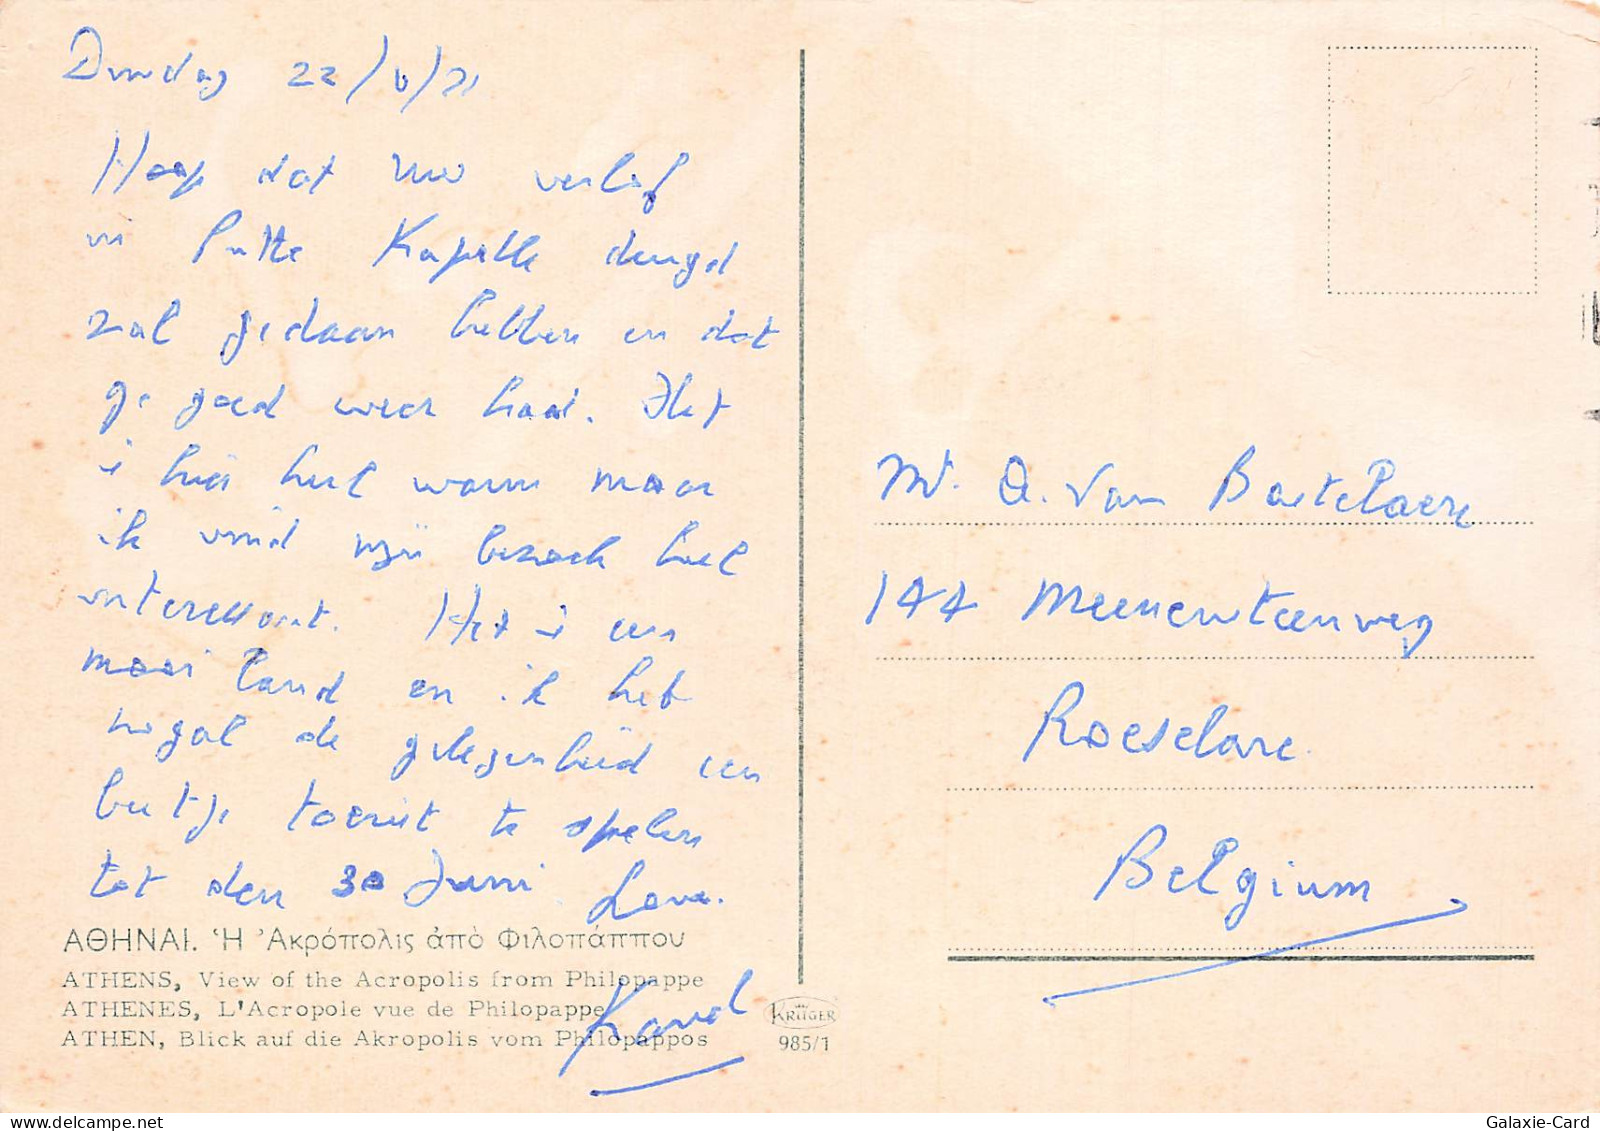 Dinsdag 22/6/71
Hoop dat uw verlof
in Putte Kapelle deugd
zal gedaan hebben en dat
ge goed weer had. Het
is hier heel warm maar
ik vind mijn bezoek heel
interessant. Het is een
mooi land en ik heb
nogal de gelegenheid een
beetje toerist te spelen
tot den 30 Juni. Love.
Karel
ΑΘΗΝΑΙ. Ἡ Ἀκρόπολις ἀπὸ Φιλοπάππου
ATHENS, View of the Acropolis from Philopappe
ATHENES, L'Acropole vue de Philopappe
ATHEN, Blick auf die Akropolis vom Philopappos
KRÜGER
985/1
Mr. A. Van Boxtelaere
144 Meensesteenweg
Roeselare
Belgium
Galaxie-Card